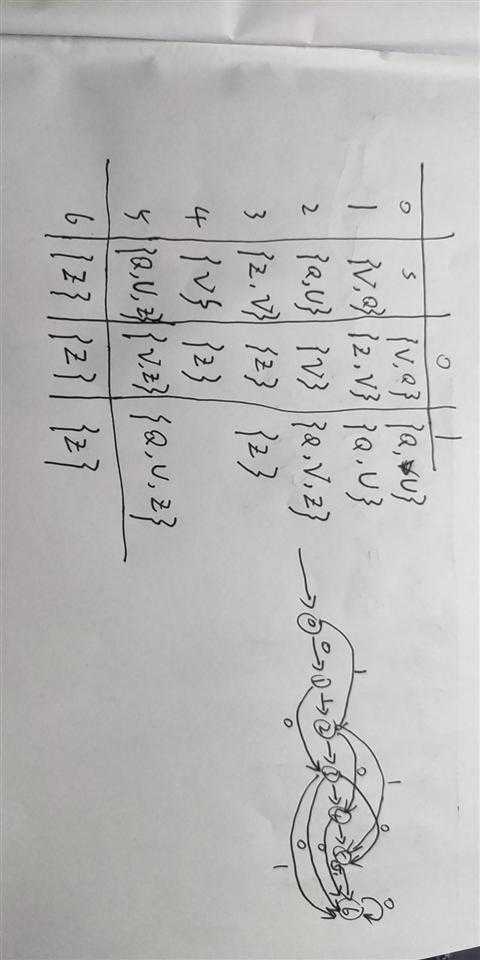 0 1
0 S {V,Q} {Q,U}
1 {V,Q} {Z,V} {Q,U}
2 {Q,U} {V} {Q,V,Z}
3 {Z,V} {Z} {Z}
4 {V} {Z}
5 {Q,U,Z} {V,Z} {Q,U,Z}
6 {Z} {Z} {Z}
1 1
0 0 0 0
0 1 1 2 3 4 5 6
0 0 0
1